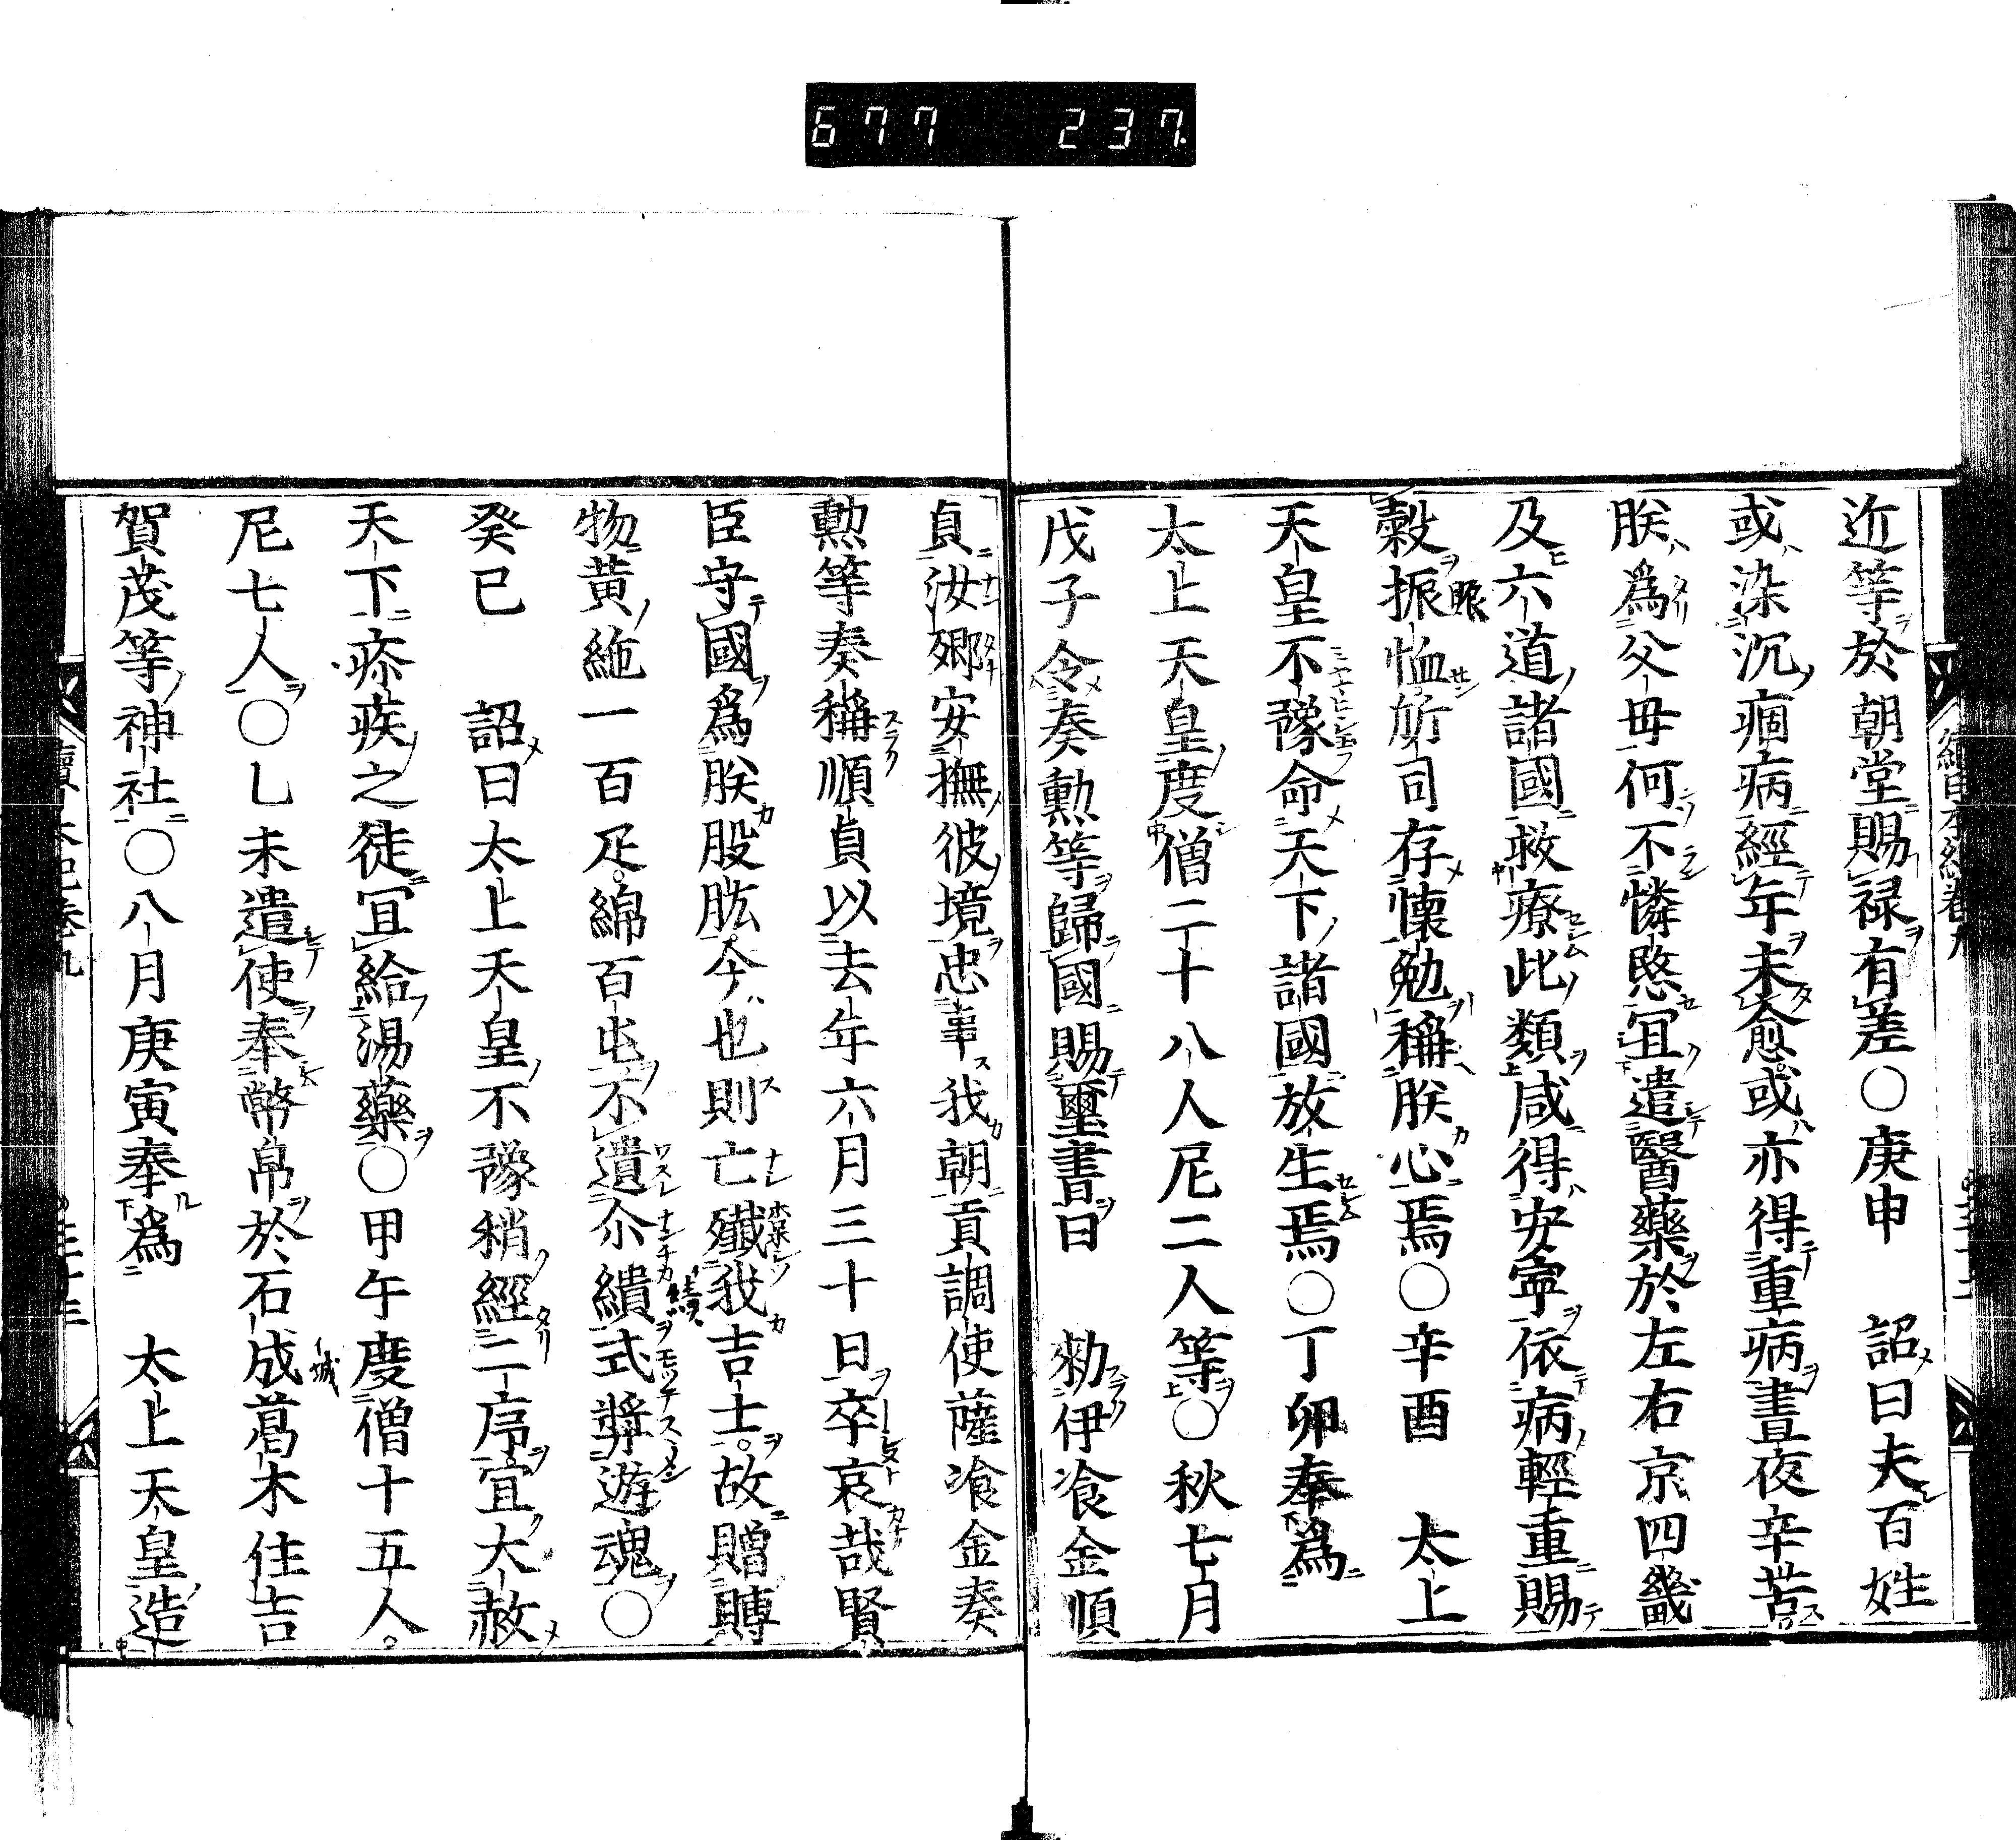 677 237
近等於朝堂賜禄有差○庚申 詔曰夫百姓
或染沉痼病經年未愈或亦得重病晝夜辛苦
朕爲父母何不憐愍宜遣醫藥於左右京四畿
及六道諸國救療此類咸得安寧依病輕重賜
穀振恤所司存懷勉稱朕心焉○辛酉 太上
天皇不豫命天下諸國放生焉○丁卯奉爲
太上天皇度僧二十八人尼二人等○秋七月
戊子令奏勲等歸國賜璽書曰 勑伊飡金順
貞汝卿安撫彼境忠事我朝貢調使薩飡金奏
勲等奏稱順貞以去年六月三十日卒哀哉賢
臣守國爲朕股肱今也則亡殲我吉士故贈賻
物黄絁一百疋綿百屯不遺尒績式奬遊魂○
癸巳 詔曰太上天皇不豫稍經二序宜大赦
天下疹疾之徒宜給湯藥○甲午度僧十五人
尼七人○乙未遣使奉幣帛於石成葛木住吉
賀茂等神社○八月庚寅奉爲 太上天皇造